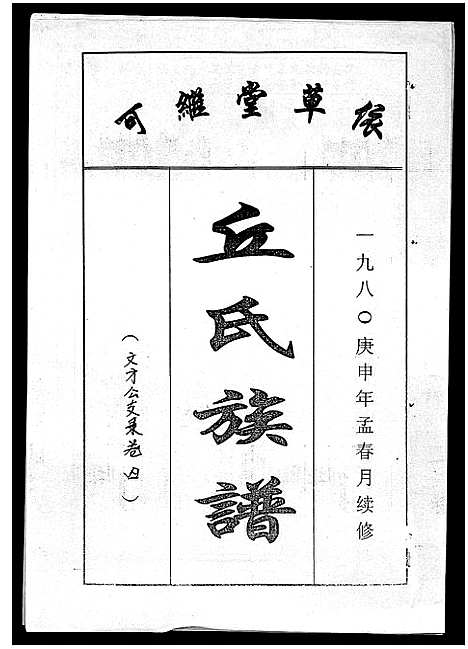 可維堂草
一九八〇庚申年孟春月续修
丘氏族譜
（文才公支系卷四）